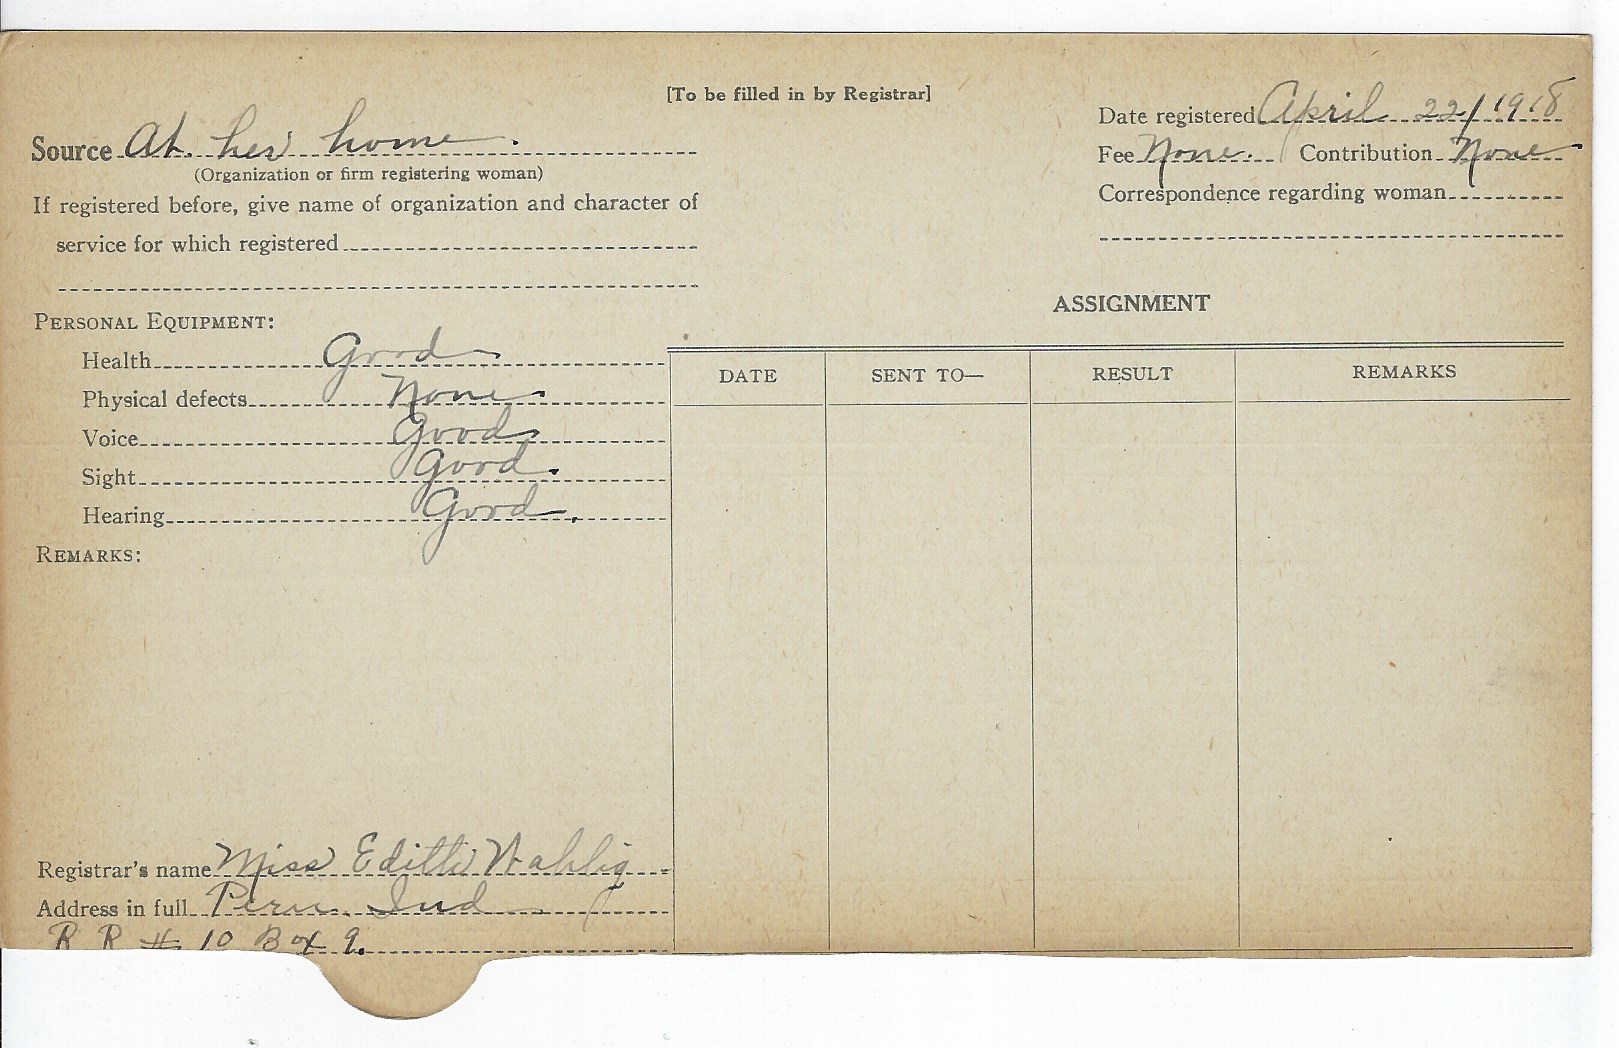 [To be filled in by Registrar]
Date registered April 22/1918
Source At her home.
Fee None. Contribution None
(Organization or firm registering woman)
Correspondence regarding woman
If registered before, give name of organization and character of
service for which registered
ASSIGNMENT
PERSONAL EQUIPMENT:
Health Good
Physical defects None
Voice Good
Sight Good.
Hearing Good.
DATE SENT TO— RESULT REMARKS
REMARKS:
Registrar's name Miss Edith Wahlig
Address in full Peru. Ind
R R # 10 Box 9.